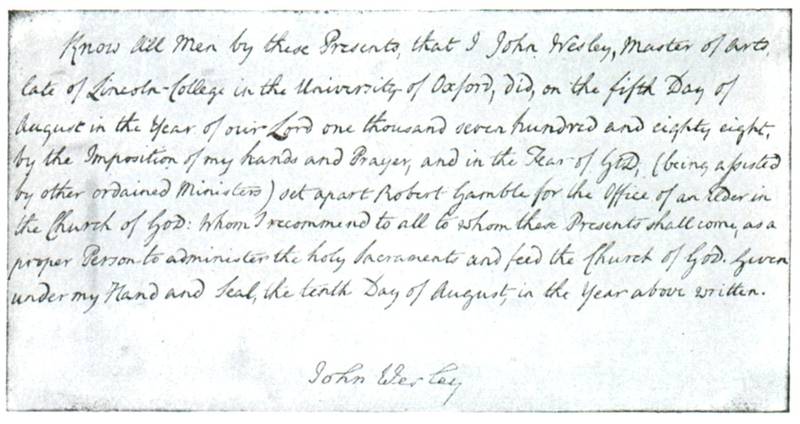 Know all Men by these Presents, that I John Wesley, Master of Arts,
late of Lincoln-College in the University of Oxford, did, on the fifth Day of
August in the Year of our Lord one thousand seven hundred and eighty eight,
by the Imposition of my hands and Prayer, and in the Fear of God, (being assisted
by other ordained Ministers) set apart Robert Gamble for the Office of an Elder in
the Church of God: Whom I recommend to all to whom these Presents shall come, as a
proper Person to administer the holy Sacraments and feed the Church of God. Given
under my Hand and Seal, the tenth Day of August, in the Year above written.
John Wesley